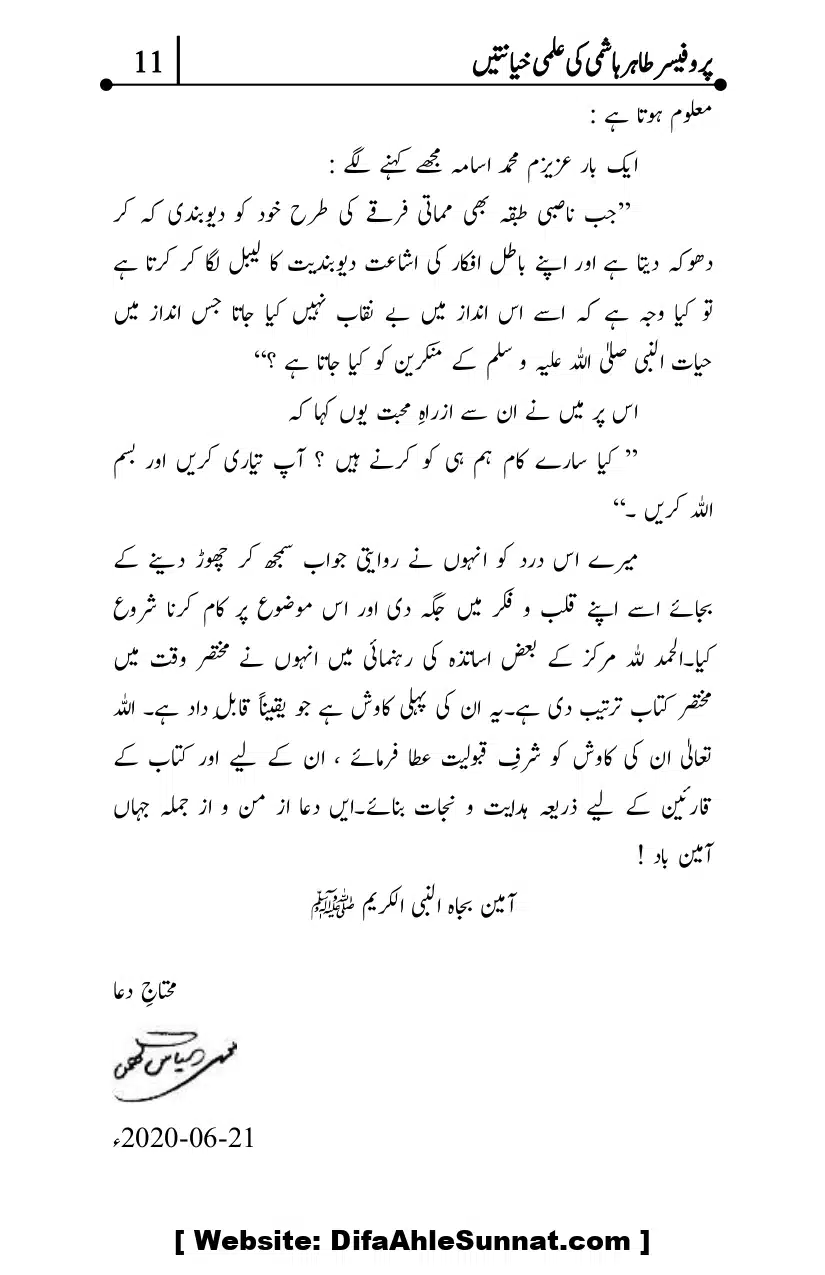 پروفیسر طاہر ہاشمی کی علمی خیانتیں 11
معلوم ہوتا ہے :
ایک بار عزیزم محمد اسامہ مجھے کہنے لگے :
”جب ناصبی طبقہ بھی مماتی فرقے کی طرح خود کو دیوبندی کہ کر
دھوکہ دیتا ہے اور اپنے باطل افکار کی اشاعت دیوبندیت کا لیبل لگا کر کرتا ہے
تو کیا وجہ ہے کہ اسے اس انداز میں بے نقاب نہیں کیا جاتا جس انداز میں
حیات النبی صلیٰ اللہ علیہ و سلم کے منکرین کو کیا جاتا ہے ؟“
اس پر میں نے ان سے ازراہِ محبت یوں کہا کہ
” کیا سارے کام ہم ہی کو کرنے ہیں ؟ آپ تیاری کریں اور بسم
اللہ کریں ۔“
میرے اس درد کو انہوں نے روایتی جواب سمجھ کر چھوڑ دینے کے
بجائے اسے اپنے قلب و فکر میں جگہ دی اور اس موضوع پر کام کرنا شروع
کیا۔الحمد للہ مرکز کے بعض اساتذہ کی رہنمائی میں انہوں نے مختصر وقت میں
مختصر کتاب ترتیب دی ہے۔یہ ان کی پہلی کاوش ہے جو یقیناً قابلِ داد ہے۔ اللہ
تعالیٰ ان کی کاوش کو شرفِ قبولیت عطا فرمائے ، ان کے لیے اور کتاب کے
قارئین کے لیے ذریعہ ہدایت و نجات بنائے۔ایں دعا از من و از جملہ جہاں
آمین باد !
آمین بجاہ النبی الکریم ﷺ
محتاجِ دعا
محمد الیاس گھمن
21-06-2020ء
[ Website: DifaAhleSunnat.com ]